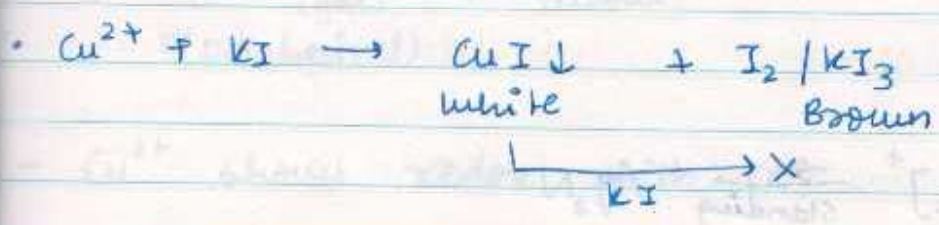 • Cu²⁺ + KI → CuI↓ + I₂ / KI₃
White Brown
KI → X